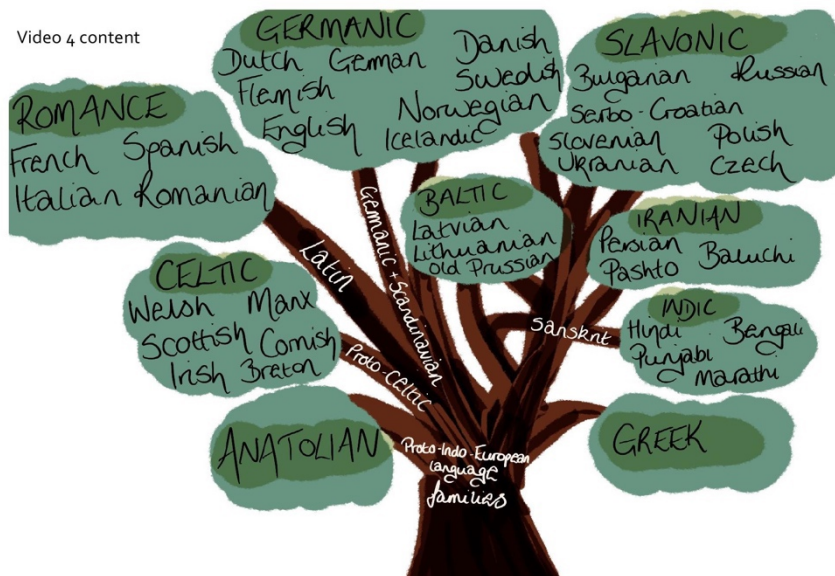 Video 4 content
ROMANCE
French Spanish
Italian Romanian
GERMANIC
Dutch German Danish
Flemish Swedish
English Norwegian
Icelandic
SLAVONIC
Bulgarian Russian
Serbo-Croatian
Slovenian Polish
Ukranian Czech
BALTIC
Latvian
Lithuanian
Old Prussian
IRANIAN
Persian
Pashto Baluchi
CELTIC
Welsh Manx
Scottish Cornish
Irish Breton
INDIC
Hindi Bengali
Punjabi
Marathi
ANATOLIAN
GREEK
Latin
Germanic + Scandinavian
Proto-Celtic
Sanskrit
Proto-Indo-European
language
families